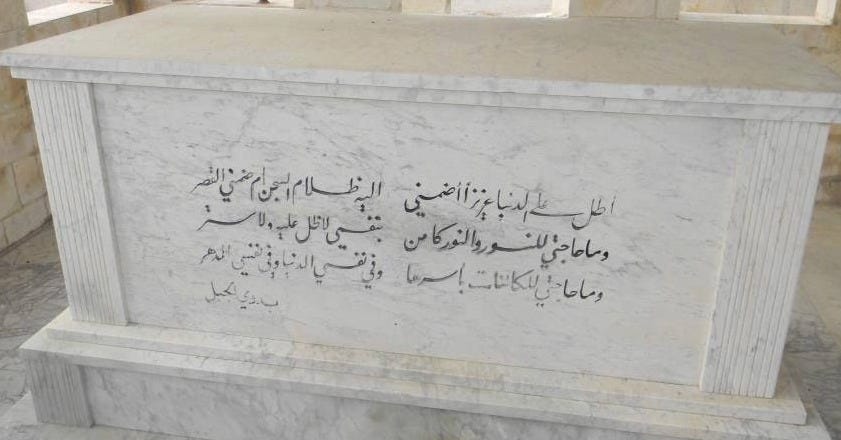 أطل على الدنيا عزيزاً أضمني    إليه ظلام السجن أم ضمني القصر
وما حاجتي للنور والنور كامن    بنفسي لا ظل عليه ولا ستر
وما حاجتي للكائنات بأسرها    وفي نفسي الدنيا وفي نفسي الدهر
بدوي الجبل